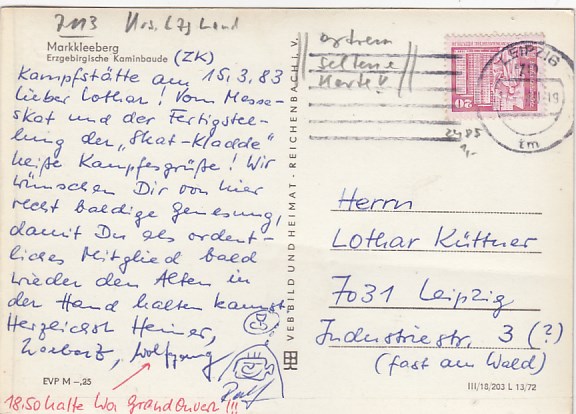 7113 Krs. Lzg Land
Markkleeberg
Erzgebirgische Kaminbaude (ZK)
Kampfstätte am 15.3.83
Lieber Lothar! Vom Messe-
skat und der Fertigstel-
lung der „Skat-Kladde"
heiße Kampfesgrüße! Wir
wünschen Dir von hier
recht baldige Genesung,
damit Du als ordent-
liches Mitglied bald
wieder den Alten in
der Hand halten kannst
Herzlichst Heiner,
Wolfgang
Rolf
EVP M –,25
18.50 hatte Wo Grand Ouvert!!!
VEB BILD UND HEIMAT · REICHENBACH i. V.
extrem
seltene
Karte!
LEIPZIG
701
20
2485
1,-
tm
Herrn
Lothar Küttner
7031 Leipzig
Industriestr. 3 (?)
(fast am Wald)
III/18/203 L 13/72